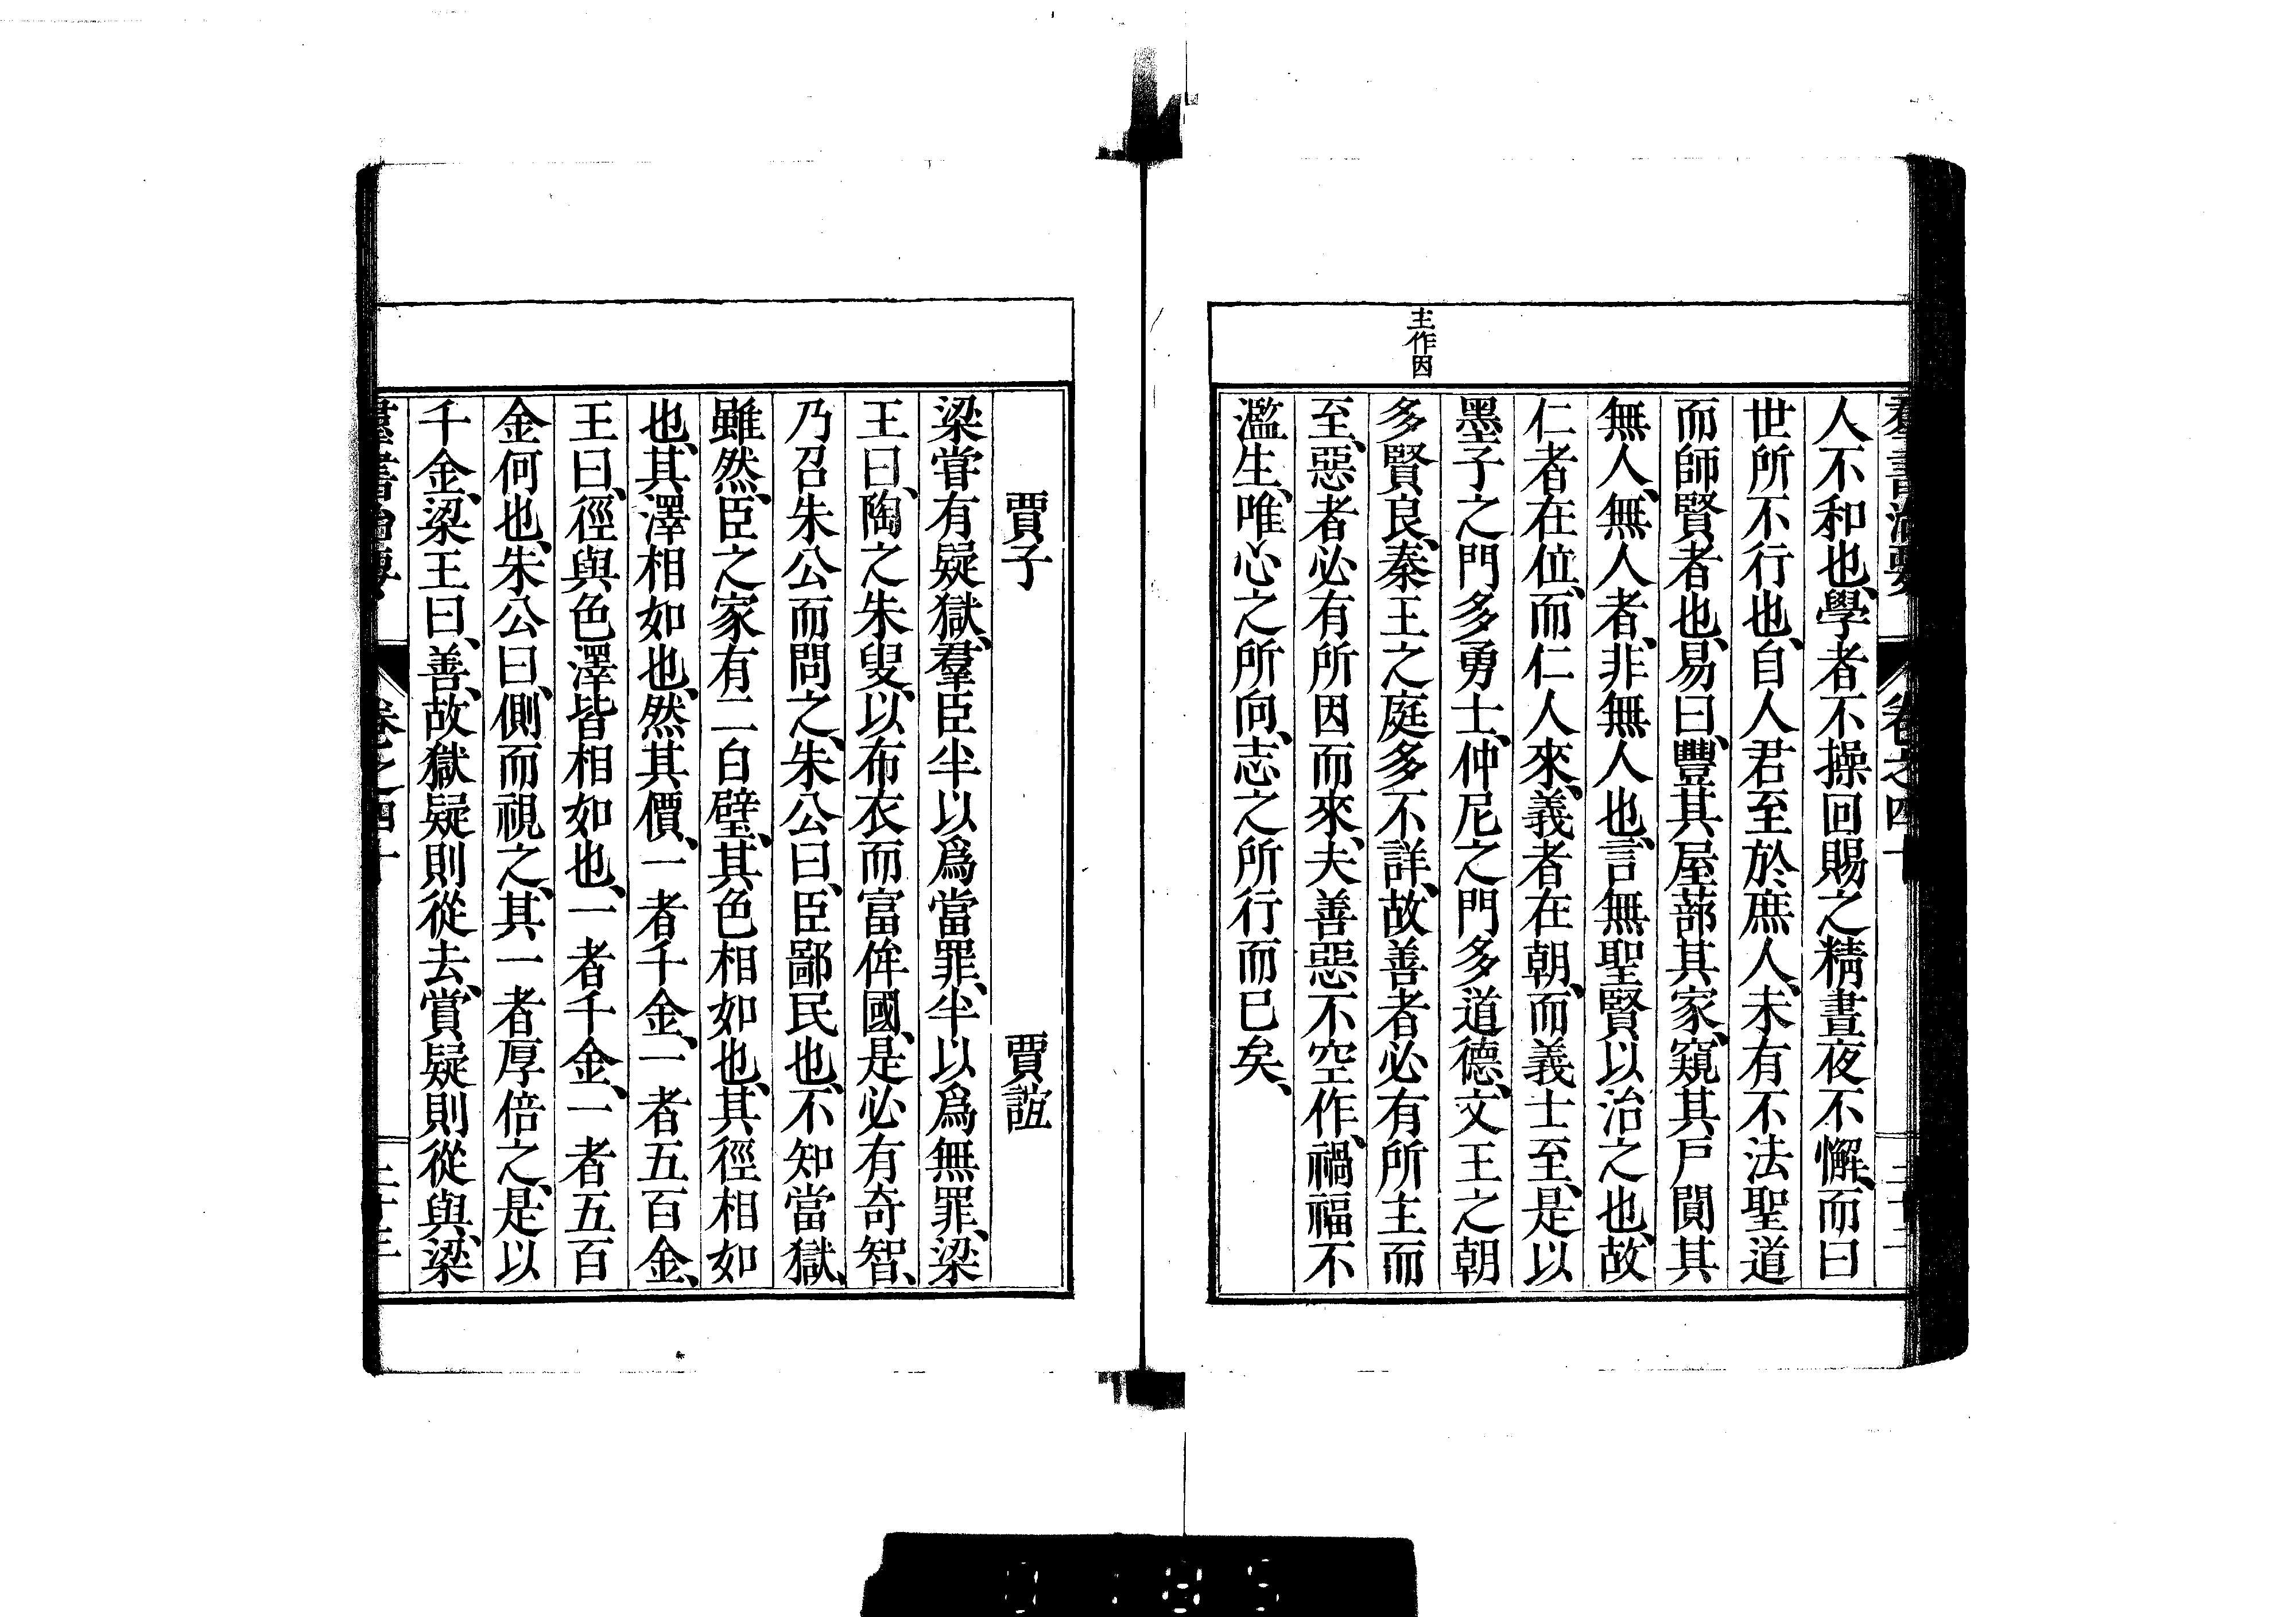 主作因
人不和也、學者不操回賜之精晝夜不懈、而曰
世所不行也、自人君至於庶人、未有不法聖道
而師賢者也、易曰、豐其屋蔀其家、窺其戸闃其
無人、無人者、非無人也、言無聖賢以治之也、故
仁者在位、而仁人來、義者在朝、而義士至、是以
墨子之門多勇士、仲尼之門多道德、文王之朝
多賢良、秦王之庭多不詳、故善者必有所主而
至、惡者必有所因而來、夫善惡不空作、禍福不
濫生、唯心之所向、志之所行而已矣、
賈子 賈誼
梁嘗有疑獄、羣臣半以爲當罪、半以爲無罪、梁
王曰、陶之朱叟、以布衣而富侔國、是必有奇智、
乃召朱公而問之、朱公曰、臣鄙民也、不知當獄、
雖然、臣之家有二白璧、其色相如也、其徑相如
也、其澤相如也、然其價、一者千金、一者五百金、
王曰、徑與色澤皆相如也、一者千金、一者五百
金何也、朱公曰、側而視之、其一者厚倍之、是以
千金、梁王曰、善、故獄疑則從去、賞疑則從與、梁